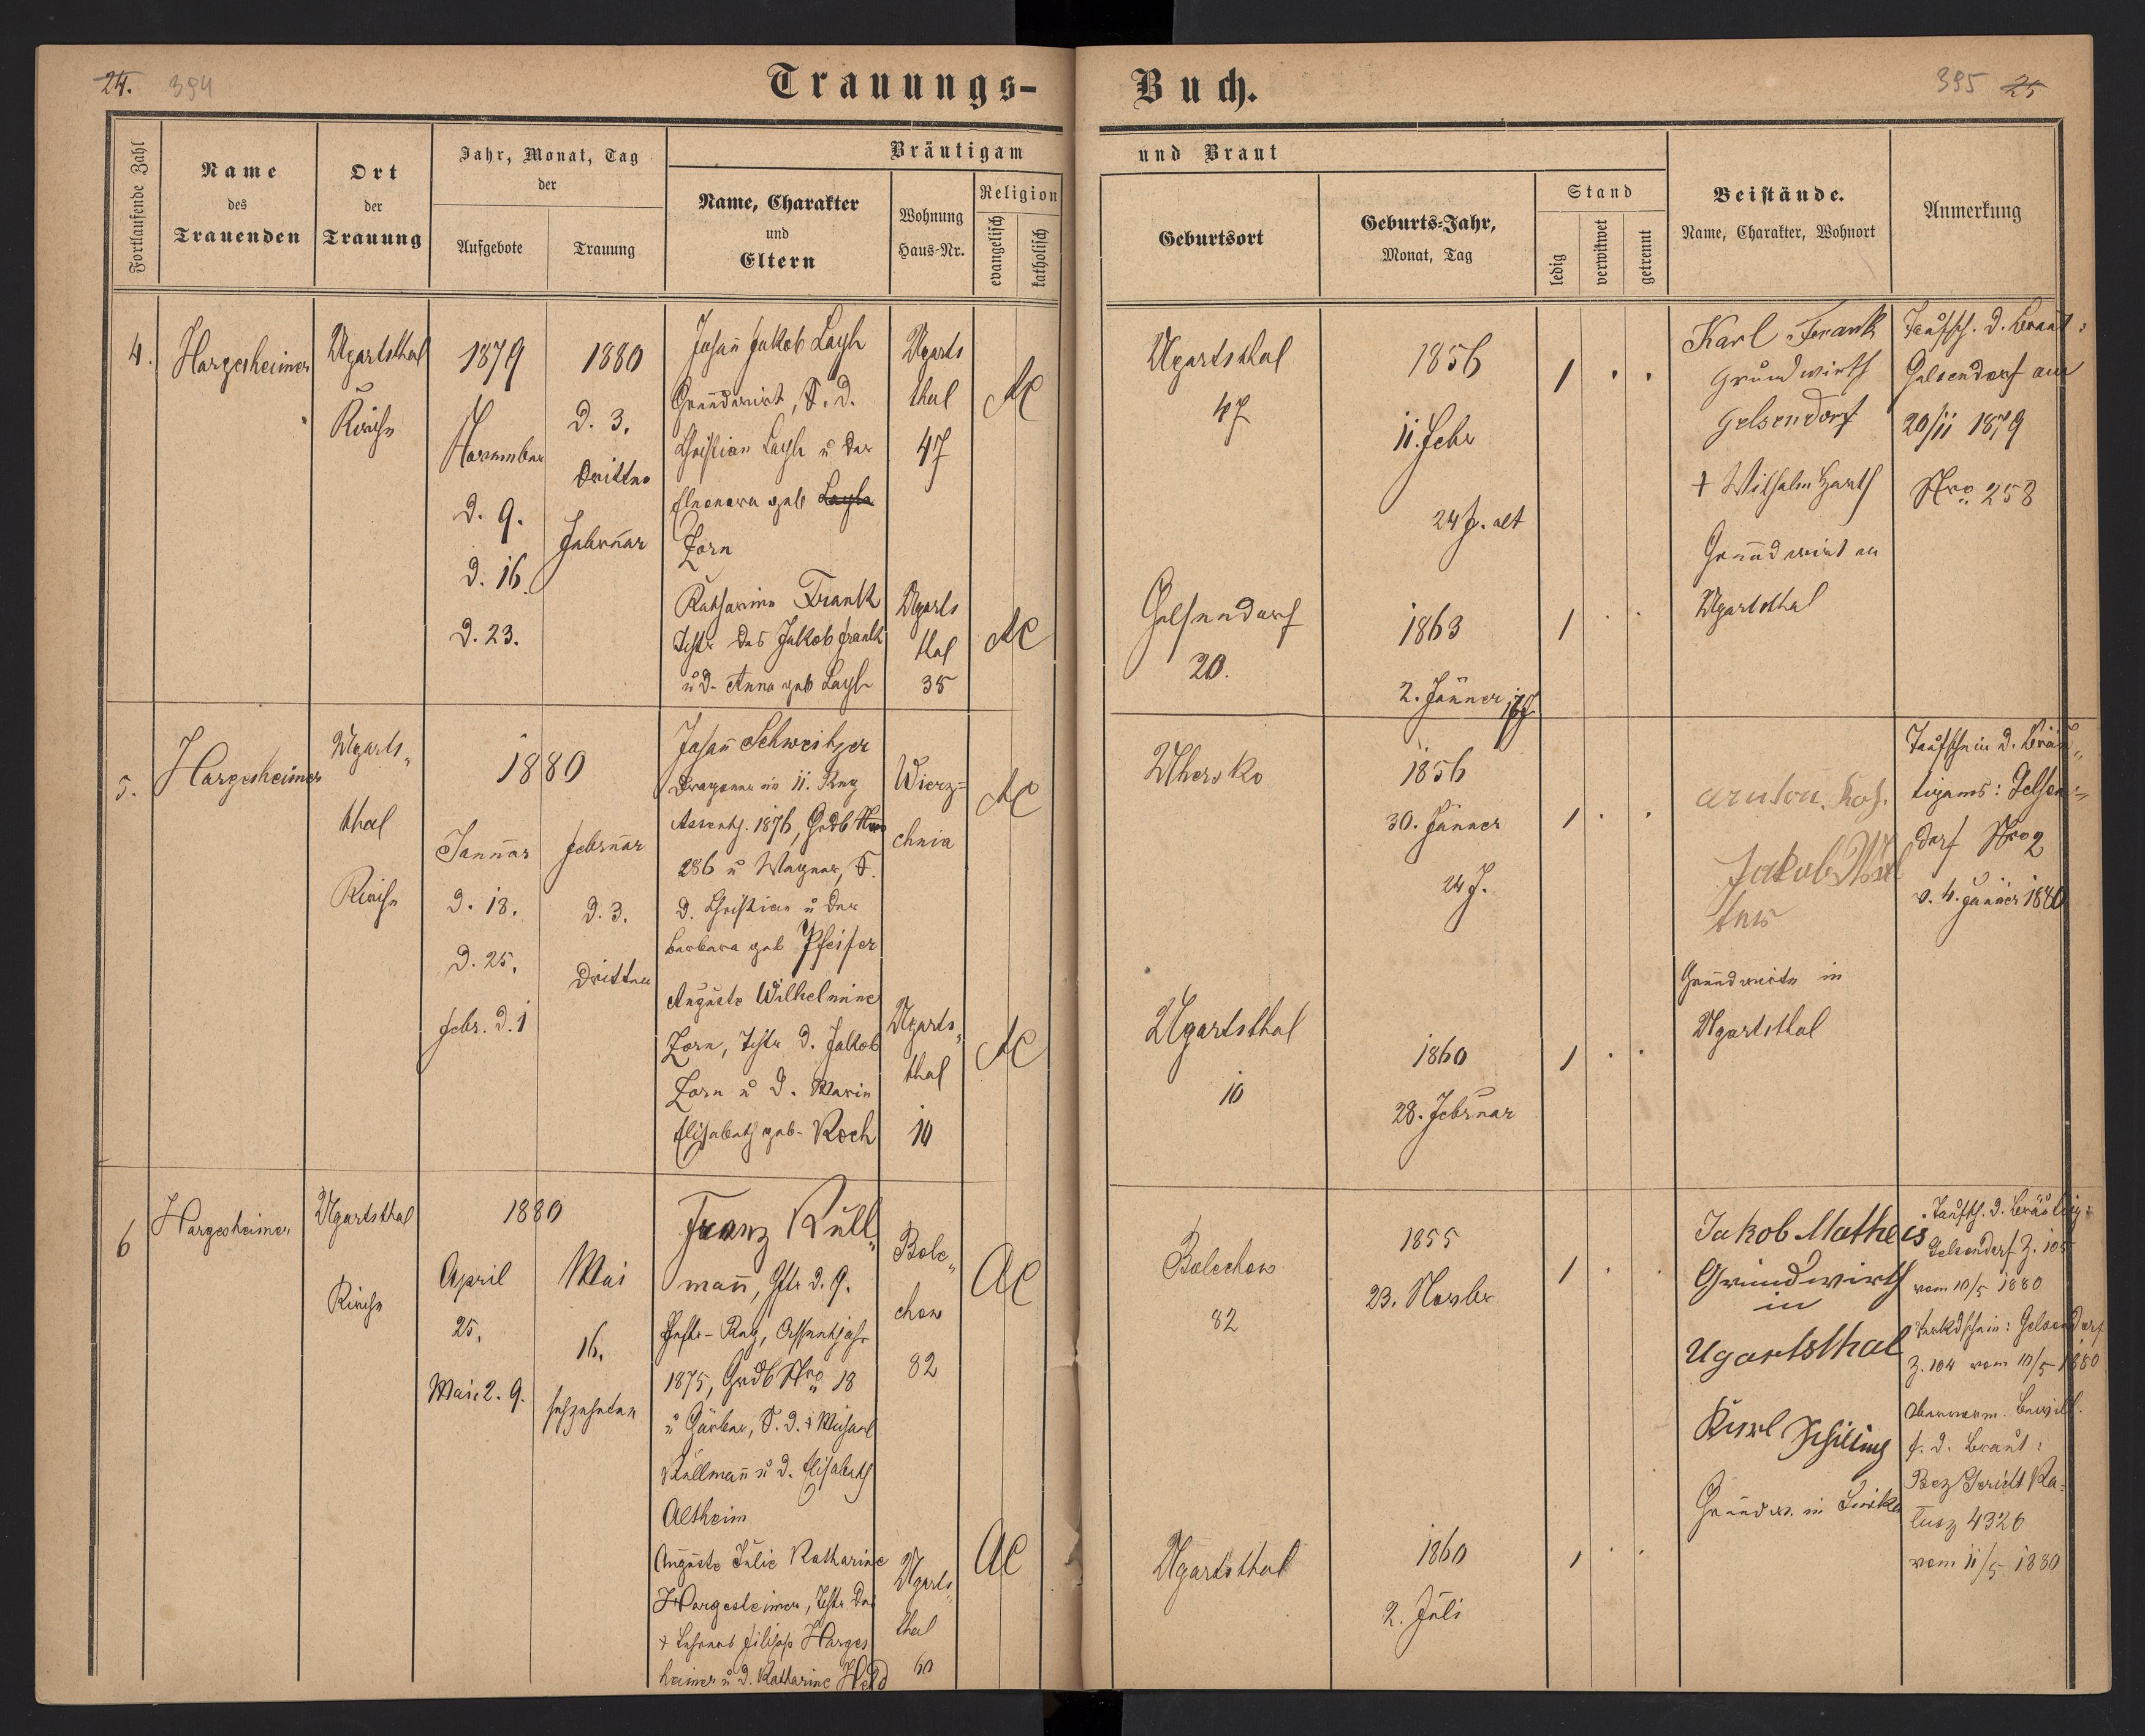 24. 394
Trauungs-
Buch.
395 25
Fortlaufende Zahl
Name
des
Trauenden
Ort
der
Trauung
Jahr, Monat, Tag
der
Aufgebote
Trauung
Bräutigam
und Braut
Name, Charakter
und
Eltern
Wohnung
Haus-Nr.
Religion
evangelisch
katholisch
Geburtsort
Geburts-Jahr,
Monat, Tag
Stand
ledig
verwitwet
getrennt
Beistände.
Name, Charakter, Wohnort
Anmerkung
4.
Hargesheimer
Ugartsthal
Kirche
1879
November
d. 9.
d. 16.
d. 23.
1880
d. 3.
Dritten
Februar
Johañ Jakob Layh
Grundwirt, S. d.
Christian Layh u der
Eleonora geb Layh
Zorn
Ugarts
thal
47
AC
Ugartsthal
47
1856
11. Febr
24 J. alt
1
Karl Frank
Grundwirth
Gelsendorf
+ Wilhelm Harth
Grundwirt in
Ugartsthal
Taufsch. d. Braut:
Gelsendorf am
20/11 1879
Nro 258
Katharina Frank
Tchtr des Jakob Frank
u d. Anna geb Layh
Ugarts
thal
35
AC
Gelsendorf
20.
1863
2. Jänner 17J
1
5.
Hargesheimer
Ugarts„
thal
Kirche
1880
Januar
d. 18.
d. 25.
Febr. d. 1
Februar
d. 3.
Dritten
Johañ Schweitzer
Dragoner im 11. Rng
Assentj. 1876, Grdb Nro
286 u Wagner, S.
d. Christian u der
Barbara geb Pfeifer
Wierz=
chnia
AC
Uhersko
1856
30. Jänner
24 J.
1
Jakob
Grundwirte in
Ugartsthal
Taufschein d. Bräu„
tigams: Gelsen=
dorf Nro 2
v. 4. Jänner 1880
Auguste Wilhelmine
Zorn, Tchtr d. Jakob
Zorn u d. Marie
Elisabeth geb. Koch
Ugarts„
thal
10
AC
Ugartsthal
10
1860
28. Februar
1
6
Hargesheimer
Ugartsthal
Kirche
1880
April
25.
Mai 2. 9.
Mai
16.
sechzehnten
Franz Küll„
mañ, d. 9.
Rng, Assentjahr
1875, Grdb Nro 18
u Gärber, S. d. + Michael
Küllmañ u d. Elisabeth
Altheim
Bole„
chow
82
AC
Bolechow
82
1855
23. Novbr
1
Jakob Matheis
Grundwirth
in
Ugartsthal
Karl Schilling
Grundw. in
Taufsch. d. Bräutig:
Gelsendorf Z. 105
vom 10/5 1880
Verkdschein: Gelsendorf
Z. 104 vom 10/5 1880
Obervorm. Bewill.
f. d. Braut:
Bez Gericht Ka=
lusz 4326
vom 11/5 1880
Auguste Julie Katharine
Hargesheimer, Tchtr des
+ Lehrers Filipp Harges
heimer u d. Katharine Held
Ugarts„
thal
60
AC
Ugartsthal
1860
2. Juli
1